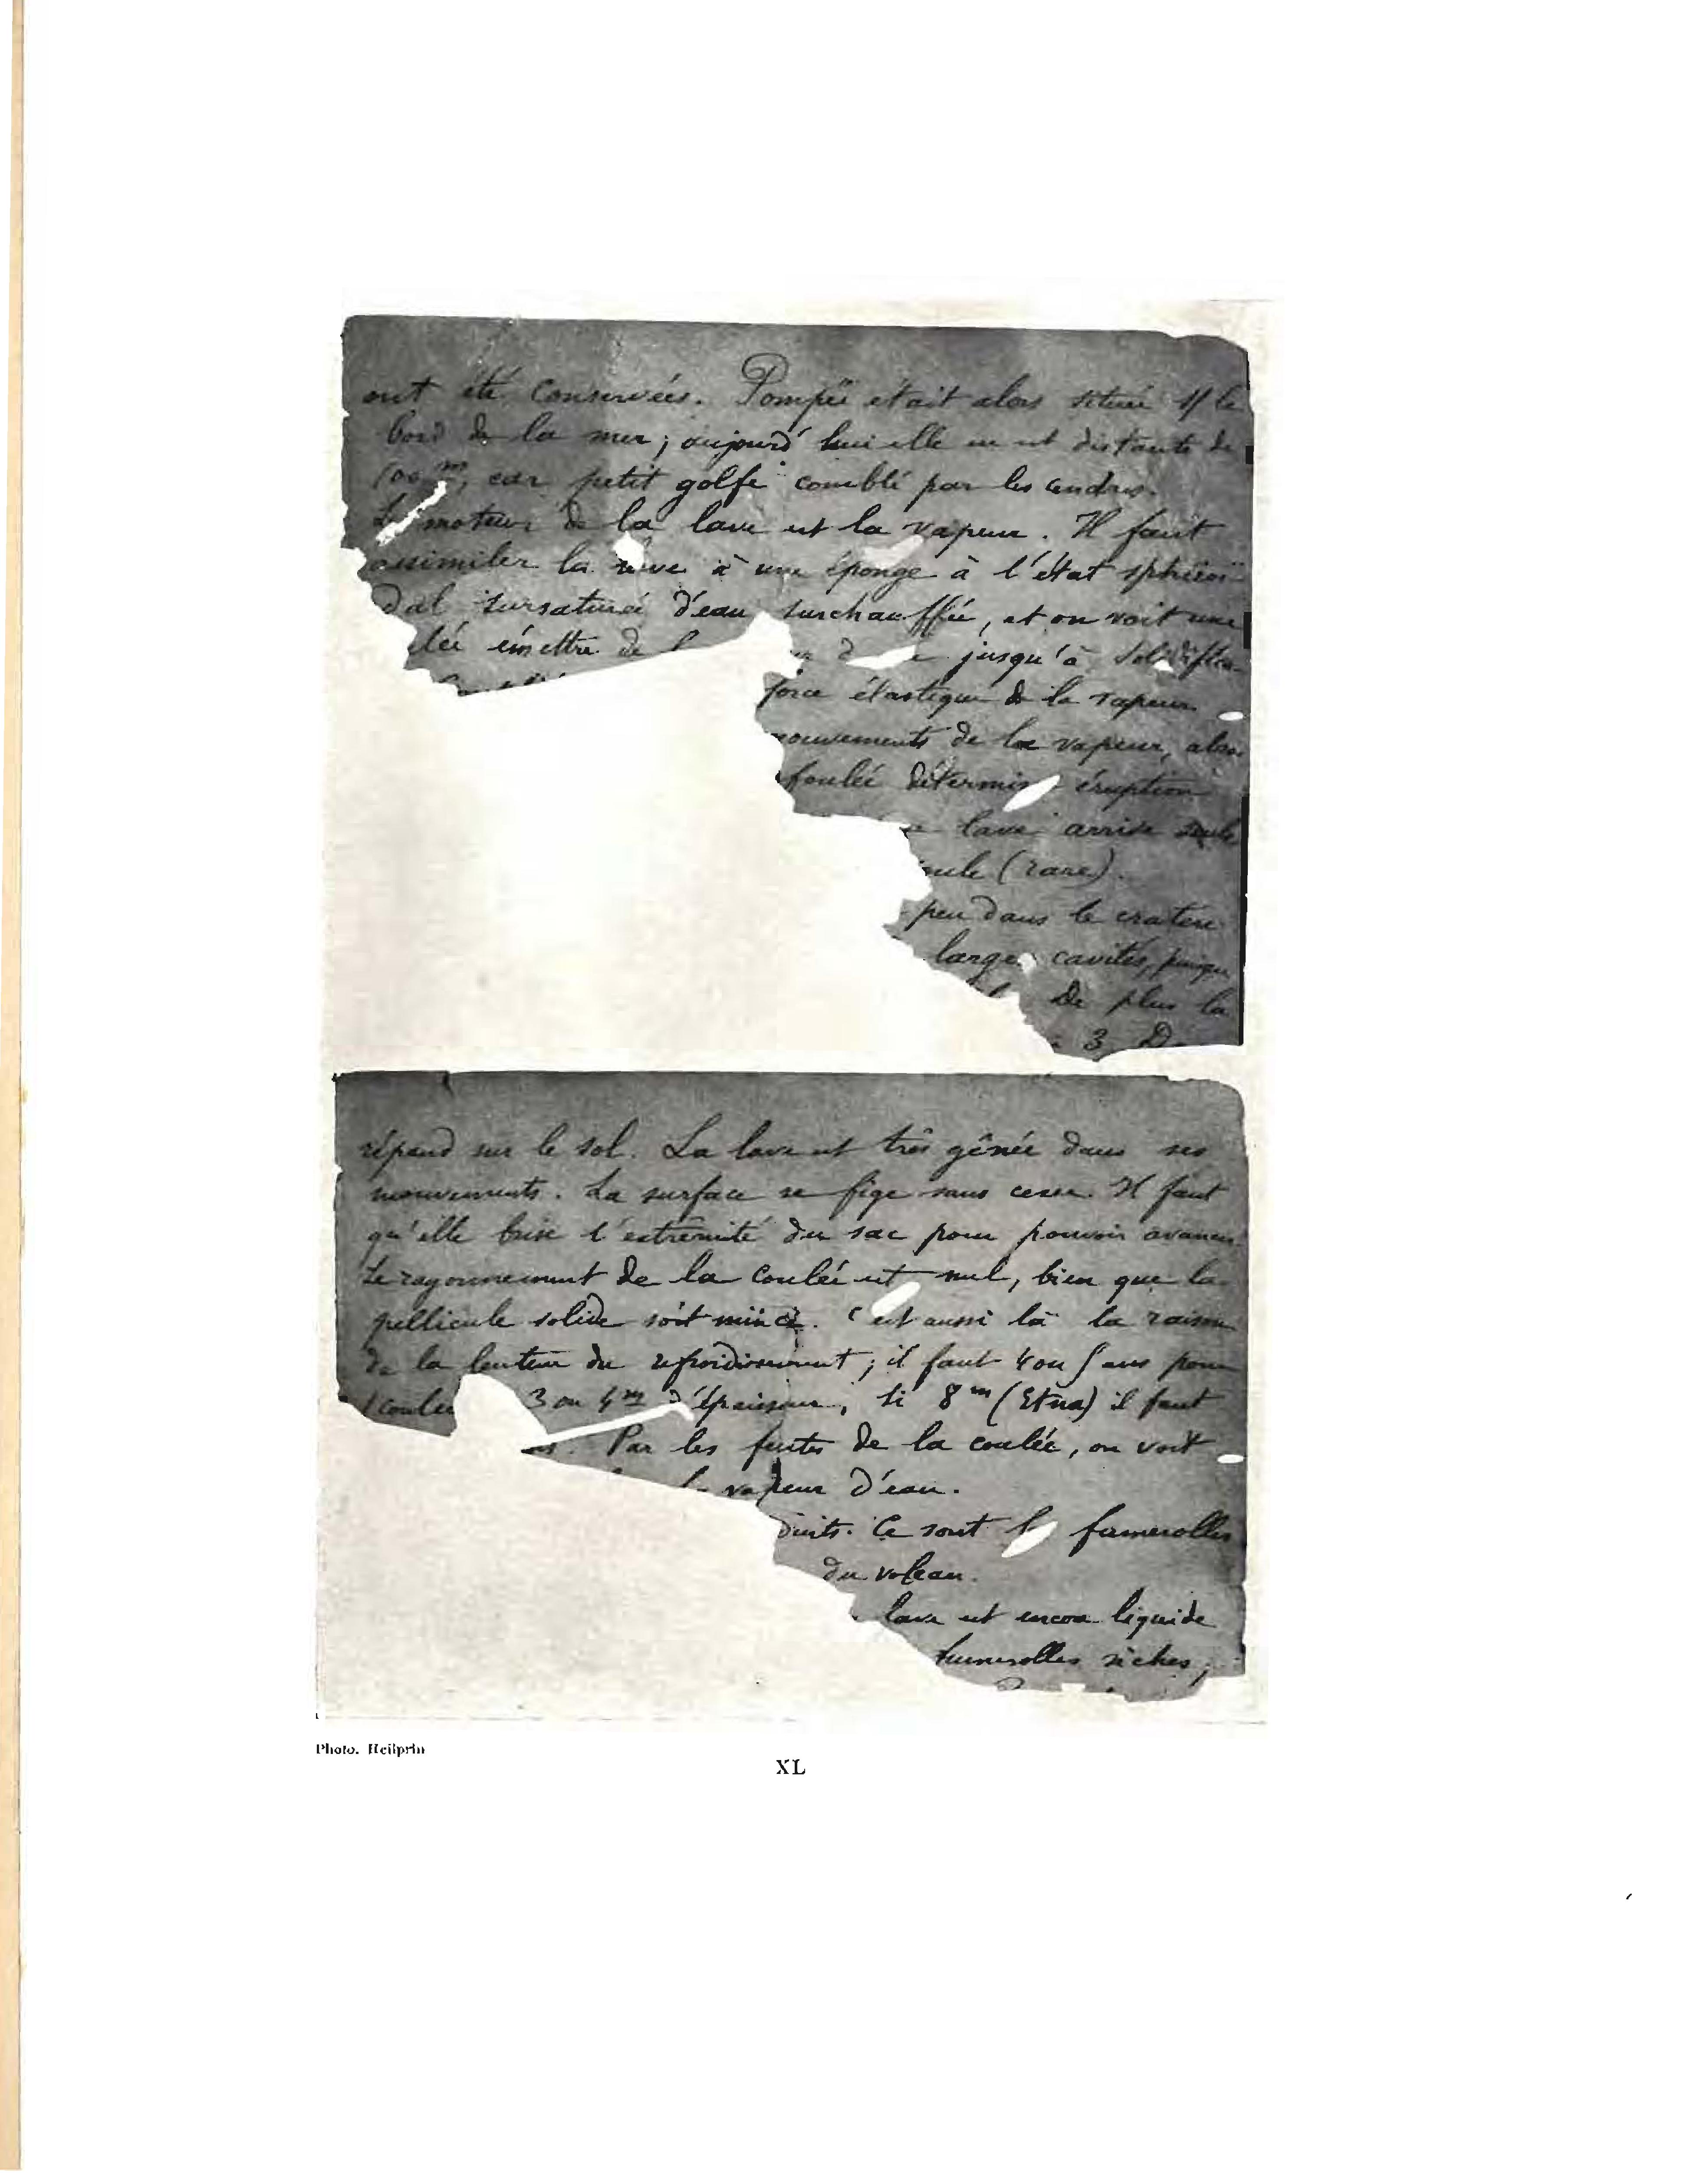 ont été conservées. Pompeï était alors situé s/ le
bord de la mer; aujourd'hui elle en est distante de
m, car petit golfe comblé par les cendres.
moteur de la lave est la vapeur. Il faut
assimiler la lave à une éponge à l'état sphéroï-
dal sursaturé d'eau surchauffée, et on voit une
lée émettre de jusqu'à solidifica-
force élastique de la vapeur
mouvements de la vapeur, alors
foulée détermine éruption
lave arrive seule
(rare).
peu dans le cratère
larges cavités, puisque
De plus la
3. D
répand sur le sol. La lave est très gênée dans ses
mouvements. La surface se fige sans cesse. Il faut
qu'elle brise l'extrêmité du sac pour pouvoir avancer.
Le rayonnement de la coulée est nul, bien que la
pellicule solide soit mince. C'est aussi là la raison
de la lenteur du refroidissement; il faut 4 ou 5 ans pour
1 coulée 3 ou 4m d'épaisseur, si 8m (Etna) il faut
Par les fentes de la coulée, on voit
vapeur d'eau.
duits. Ce sont fumerolles
du volcan.
lave est encore liquide
fumerolles sèches;
Photo. Heilprin
XL